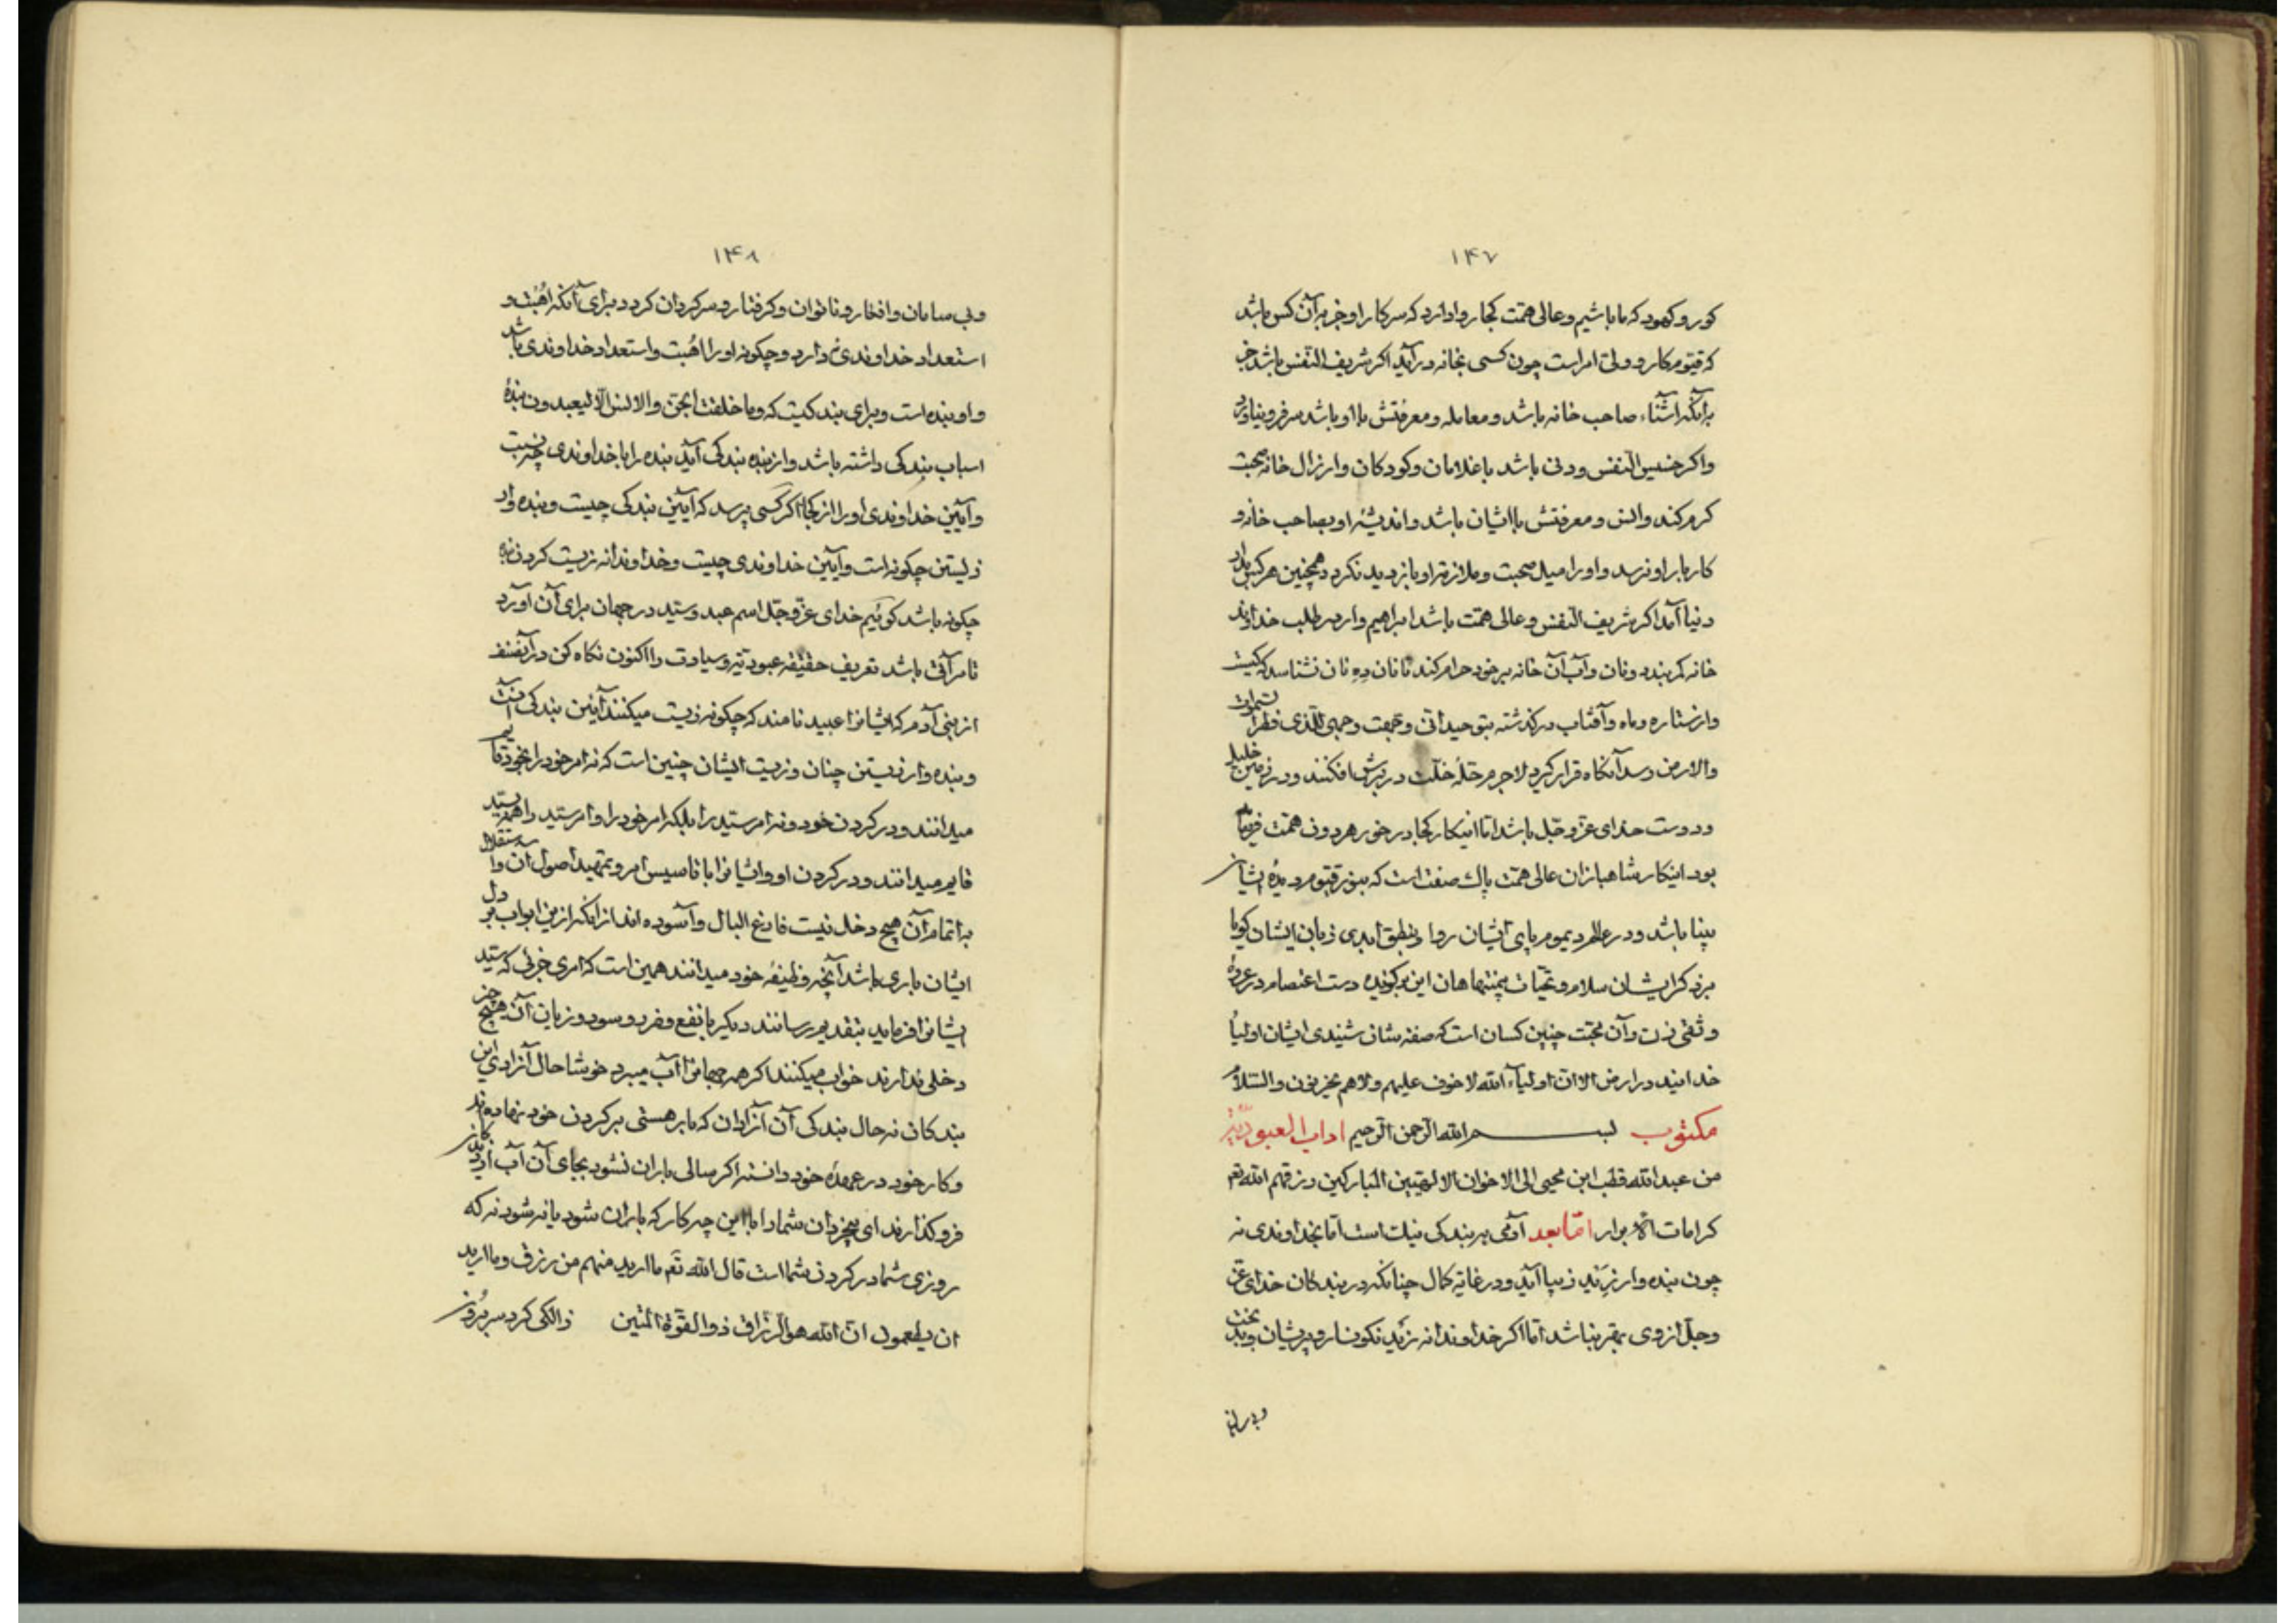 ۱۴۷
کور و کبود که ما باشیم و عالی همت کجا روا دارد که سرکار او جز بر آن کس باشد
که قیوم کار و ولی امر است چون کسی بخانه درآید اکر شریف النفس باشد جز
بر آنکه آشناء صاحب خانه باشد و معامله و معرفتش با او باشد سر فرو نیاورد
واکر خسیس النفس و دنی باشد با غلامان و کودکان و ارزال خانه صحبت
کرم کند و انس و معرفتش با ایشان باشد و اندیشهٔ او بصاحب خانه و
کاربار او نرسد و اورا میل صحبت و ملازمة او بازدید نکردد همچنین هرکس بدار
دنیا آمد اکر شریف النفس و عالی همت باشد ابراهیم وار در طلب خداوند
خانه کمر بندد و نان و آب آن خانه بر خود حرام کند تا نان ده نان نشناسد که کیست
و از ستاره و ماه و آفتاب درکذشته بتوحید انی وجهت وجهی للذی فطر السموات
والارض رسد آنکاه قرار کیرد لاجرم حلهٔ خلت در برش افکنند و در زمین خلیل
و دوست خدای عز و جل باشد اما اینکار کجا در خور هر دون همت فرومایه
بود اینکار شاهبازان عالی همت پاک صفت است که بنور قیوم دیدهٔ ایشان
بینا باشد و در عالم دیموم پای ایشان روا و بنطق ابدی زبان ایشان کویا
برذکر ایشان سلام و تحیات بمنتها هان این برکوی و دست اعتصام در عروة
وثقی زن و آن محبت چنین کسان است که صفه شان شنیدی ایشان اولیاء
خدایند در ارض الا ان اولیاء الله لا خوف علیهم ولا هم یحزنون والسلام
مکتوب بسم الله الرحمن الرحیم اداب العبودیة
من عبدالله قطب ابن محیی الی الاخوان الالهیین المبارکین رزقهم الله تعم
کرامات الابرار اما بعد آدمی ببندکی نیک است اما بخداوندی نه
چون بنده وار زید زیبا آید و در غایة کمال چنانکه در بندکان خدای عز
و جل از وی بهتر نباشد اما اکر خداوندانه زید نکونسار و پریشان و بدبخت
و بی سا
۱۴۸
و بی سامان و افکار و ناتوان و کرفتار و سرکردان کردد برای آنکه اهبت و
استعداد خداوندی ندارد و چکونه اورا اهبت و استعداد خداوندی باشد
و او بنده است و برای بندکیست که و ما خلقت الجن والانس الا لیعبدون بنده
اسباب بندکی داشته باشد و از بنده بندکی آید بنده را با خداوندی چه نسبت
و آیین خداوندی اورا از کجا اکر کسی پرسد که آیین بندکی چیست و بنده وار
زیستن چکونه است و آیین خداوندی چیست و خداوندانه زیست کردن بنده
چکونه باشد کوئیم خدای عز و جل اسم عبد و سید در جهان برای آن آورد
تا مرآتی باشد تعریف حقیقه عبودیة و سیادت را اکنون نکاه کن در آن صنف
از بنی آدم که ایشانرا عبید نامند که چکونه زیست میکنند آیین بندکی آنست
و بنده وار زیستن چنان و زیست ایشان چنین است که نه امر خود را بخود قایم
میدانند و در کردن خود و نه امر سید را بلکه امر خود را و امر سید را همه بسید
قایم میدانند و در کردن او و ایشانرا با تاسیس امر و تمهید اصول آن و استقلال
به اتمام آن هیچ دخل نیست فارغ البال و آسوده اند از آنکه از این ابواب بر دل
ایشان باری باشد آنچه وظیفهٔ خود میدانند همین است که امری جزئی که سید
ایشانرا فرماید بتقدیم رسانند دیکر با نفع و ضرر و سود و زیان آن هیچ چیز
دخلی ندارند خواب میکنند اکر همه جهانرا آب میبرد خوشا حال آزادی این
بندکان نه حال بندکی آن آزادان که بار هستی بر کردن خود نهاده اند
و کار خود در عهدهٔ خود دانسته اکر سالی باران نشود بجای آن آب از دیدکان
فرو کذارند ای بیخردان شما را با این چه کار که باران شود یا نه شود نه که
روزی شما در کردن شما است قال الله تعم ما ارید منهم من رزق و ما ارید
ان یطعمون ان الله هو الرزاق ذو القوة المتین زالکی کرد سر برون